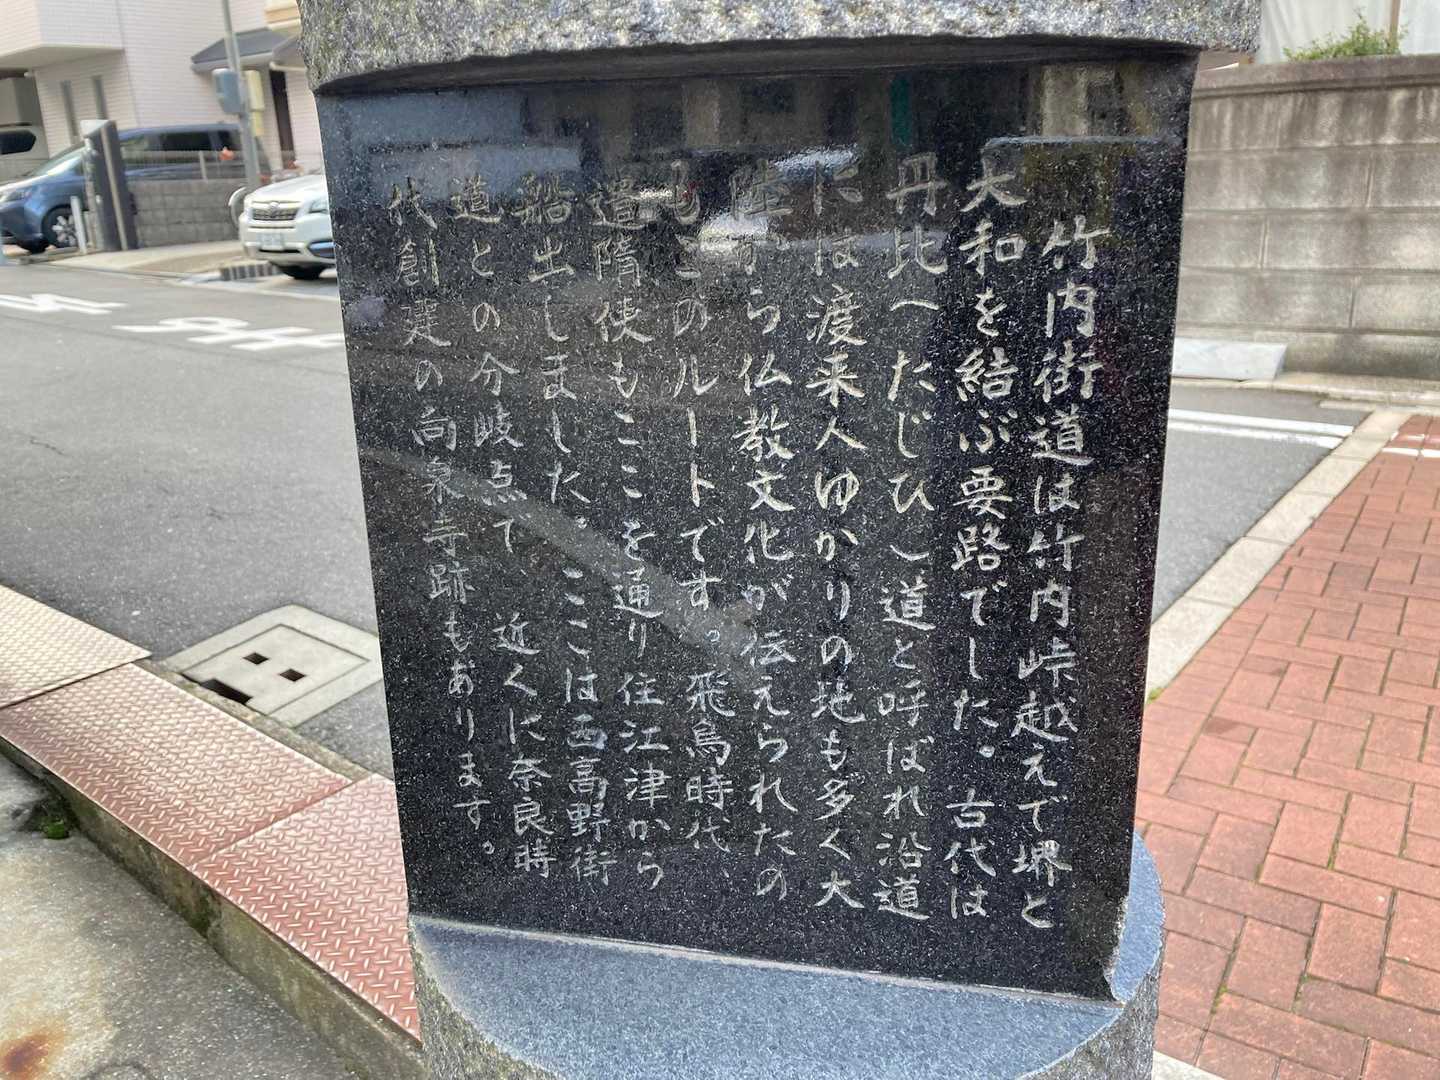 竹内街道は竹内峠越えで堺と
大和を結ぶ要路でした。古代は
丹比へたじひ)道と呼ばれ沿道
には渡来人ゆかりの地も多く大
陸から仏教文化が伝えられたの
もこのルートです。飛鳥時代、
遣隋使もここを通り住江津から
船出しました。ここは西高野街
道との分岐点で、近くに奈良時
代創建の向泉寺跡もあります。